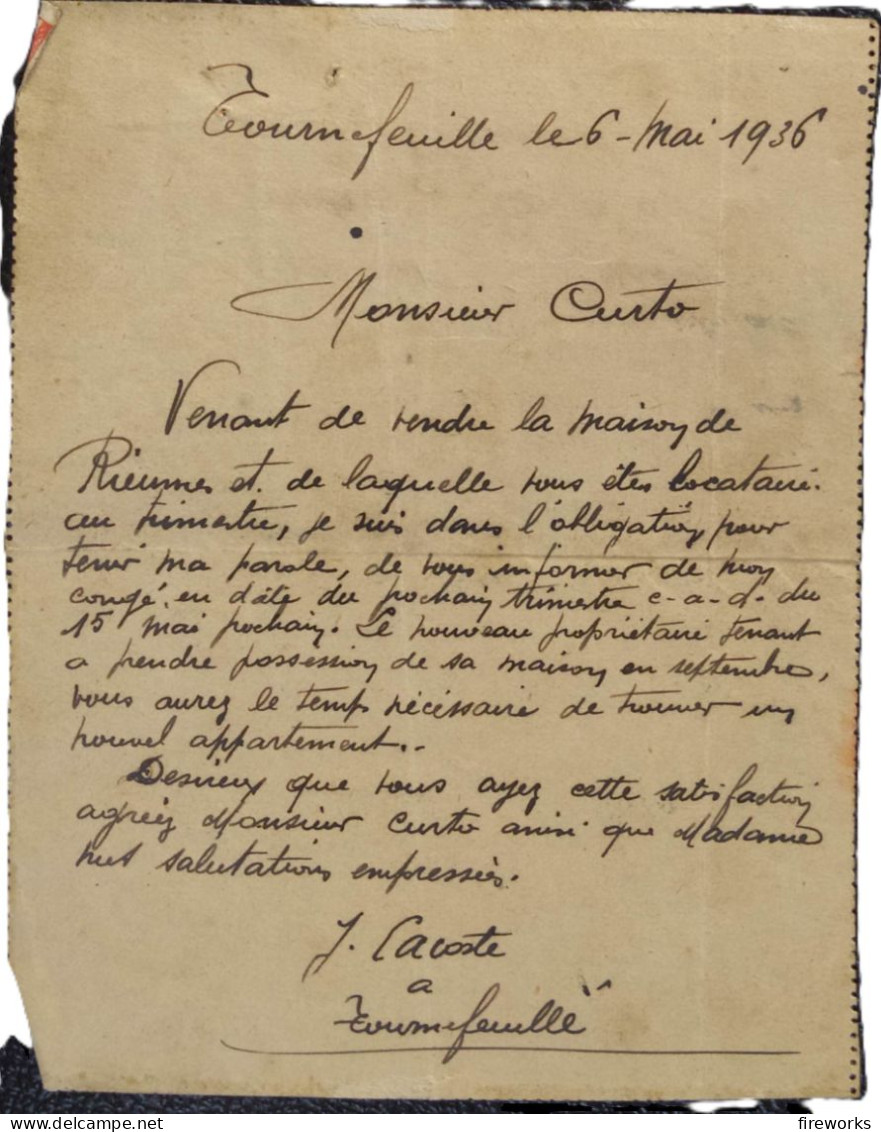 Tournefeuille le 6 - Mai 1936
Monsieur Curto
Venant de vendre la maison de
Rieumes et. de laquelle vous êtes locataire.
au trimestre, je suis dans l'obligation, pour
tenir ma parole, de vous informer de mon
congé. en dâte du pochain trimestre c-a-d- du
15 mai pochain. Le nouveau propriétaire tenant
a prendre possession de sa maison en septembre,
vous aurez le temps nécéssaire de trouver un
nouvel appartement..
Desireux que vous ayez cette satisfaction
agréez Monsieur Curto ainsi que Madame
mes salutations empressées.
J. Lacoste
a
Tournefeuille
fireworks